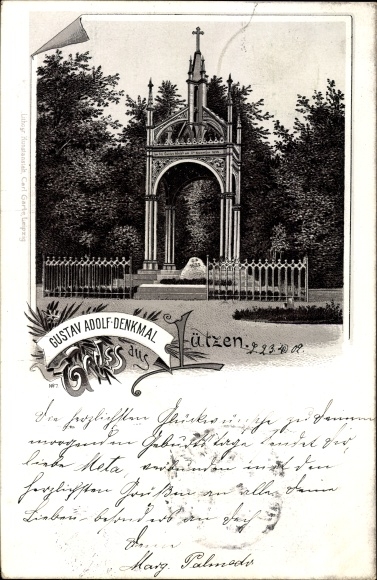 GUSTAV ADOLF-DENKMAL.
Gruss aus Lützen.
Lithogr. Kunstanstalt Carl Garte, Leipzig
Die herzlichsten Glückwünsche zu Deinem
morgenden Geburtstage sendet Dir,
liebe Meta, verbunden mit den
herzlichsten Grüßen an alle Deine
Lieben, besonders an Dich
Deine
Marg. Palmedo